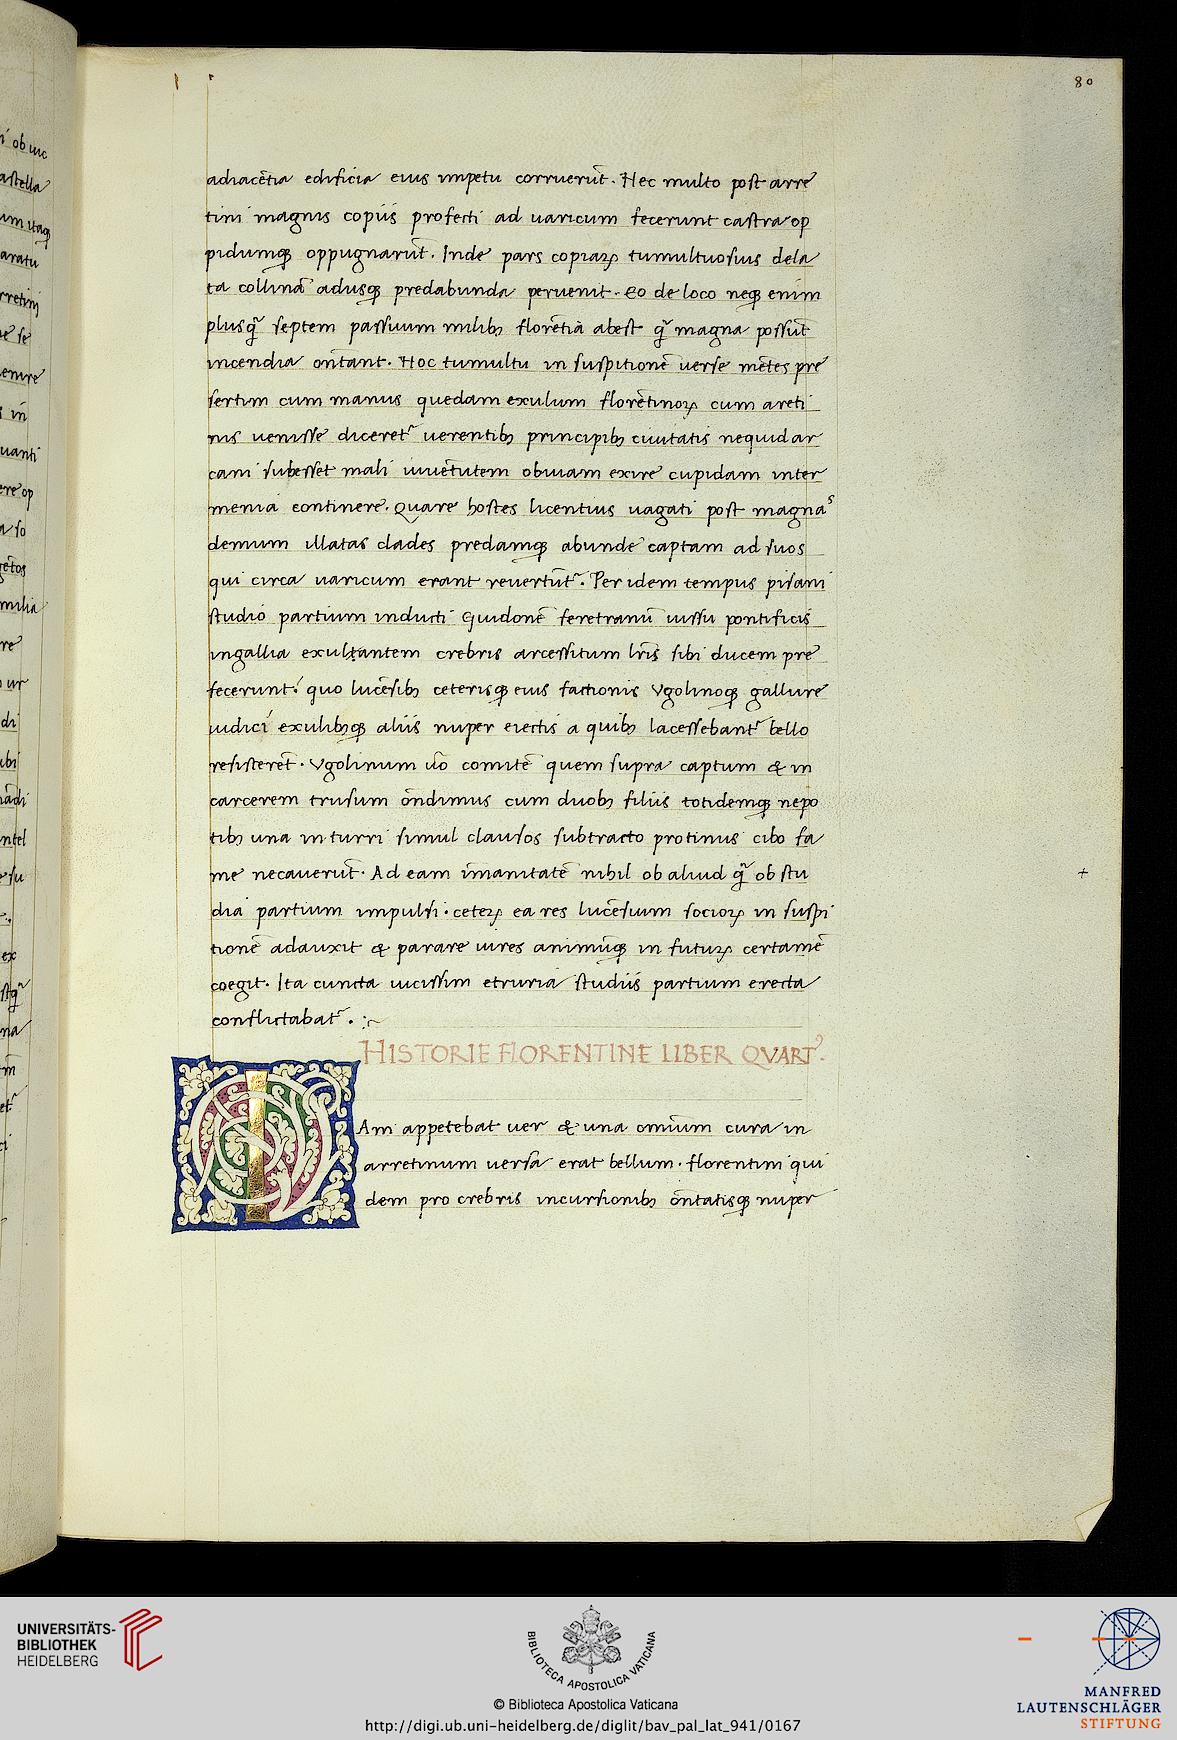 80
adiacētia edificia eius impetu corruerūt. Hec multo post arre
tini magnis copiis profecti ad uaricum fecerunt castra op
pidumqꝫ oppugnarūt. Inde pars copiaꝝ tumultuosius dela
ta collinā adusqꝫ predabunda peruenit. Eo de loco neqꝫ enim
plusq̄ septem passuum milibꝫ florētia abest q̄ magna possūt
incendia ōntant. Hoc tumultu in suspitionē uerse mētes pre
sertim cum manus quedam exulum florētinoꝝ cum areti
nis uenisse diceretᷣ uerentibꝫ principibꝫ ciuitatis nequid ar
cani subesset mali iuuētutem obuiam exire cupidam inter
menia continere. Quare hostes licentius uagati post magnas
demum illatas clades predamqꝫ abunde captam ad suos
qui circa uaricum erant reuertūtᷣ. Per idem tempus pisani
studio partium inducti Guidonē feretranū iussu pontificis
ingallia exultantem crebris arcessitum lr̄is sibi ducem pre
fecerunt: quo lucēsibꝫ ceterisqꝫ eius factionis Vgolinoqꝫ gallure
iudici exulibꝫqꝫ aliis nuper eiectis a quibꝫ lacessebantᷣ bello
resisterēt. Vgolinum ūo comitē quem supra captum & in
carcerem trusum ōndimus cum duobꝫ filiis totidemqꝫ nepo
tibꝫ una in turri simul clausos subtracto protinus cibo fa
me necauerūt. Ad eam īmanitatē nihil ob aliud q̄ ob stu
dia partium impulsi. ceteꝝ ea res lucēsium socioꝝ in suspi
tionē adauxit & parare uires animūqꝫ in futuꝝ certamē
coegit. Ita cuncta uicissim etruria studiis partium erecta
conflictabatᷣ. :~
HISTORIE FLORENTINE LIBER QVARTꝰ.
IAm appetebat uer & una omīum cura in
arretinum uersa erat bellum. florentini qui
dem pro crebris incursionibꝫ ōntatisqꝫ nuper
UNIVERSITÄTS-
BIBLIOTHEK
HEIDELBERG
BIBLIOTECA APOSTOLICA VATICANA
© Biblioteca Apostolica Vaticana
http://digi.ub.uni-heidelberg.de/diglit/bav_pal_lat_941/0167
MANFRED
LAUTENSCHLÄGER
STIFTUNG